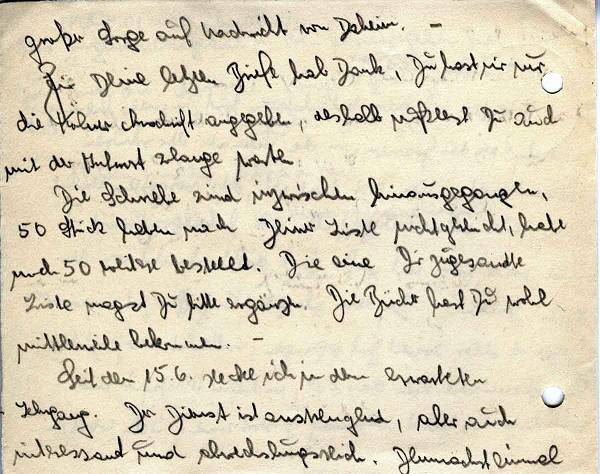 großer Sorge auf Nachricht von Daheim. –
Für Deine letzten Briefe hab Dank, Du hast mir nur
die Kölner Anschrift angegeben, deshalb mußtest Du auch
mit der Antwort solange warten.
Die Schnelle sind inzwischen hinausgegangen,
50 Stück haben nach Deiner Liste nicht gereicht, habe
noch 50 weitere bestellt. Die eine Dir zugesandte
Liste magst Du bitte ergänzen. Die Bücher hast Du wohl
mittlerweile bekommen. –
Seit dem 15.6. stecke ich in dem erwarteten
Lehrgang. Der Dienst ist anstrengend, aber auch
interessant und abwechslungsreich. Demnächst einmal